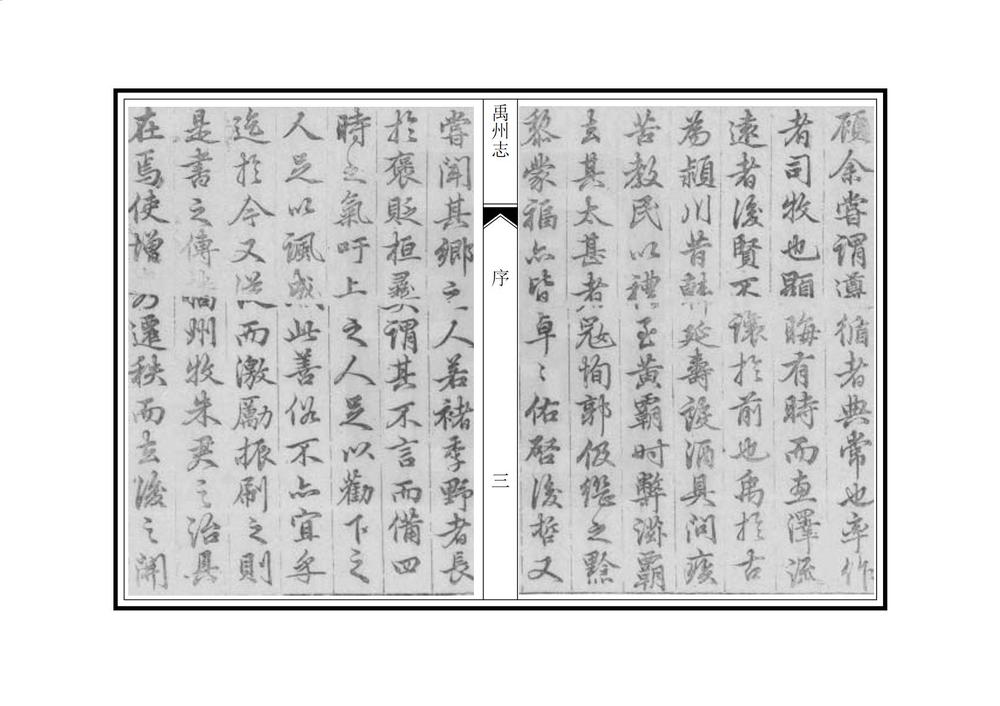 顧余嘗謂遵循者典常也率作
者司牧也顯晦有時而惠澤流
遠者後賢不讓於前也禹於古
為潁川昔韓延壽設酒具問疾
苦教民以禮至黃霸时弊滋霸
去其太甚者冦恂郭伋繼之黔
黎蒙福亦皆卓〻佑啓後哲又
禹州志
序
三
嘗聞其鄉之人若褚季野者長
於褒貶桓彞謂其不言而備四
時之氣吁上之人足以勸下之
人足以諷感此善俗不亦宜乎
迄於今又從而激勵振刷之則
是書之傳禹州牧朱君之治具
在焉使增 遷秩而去後之開